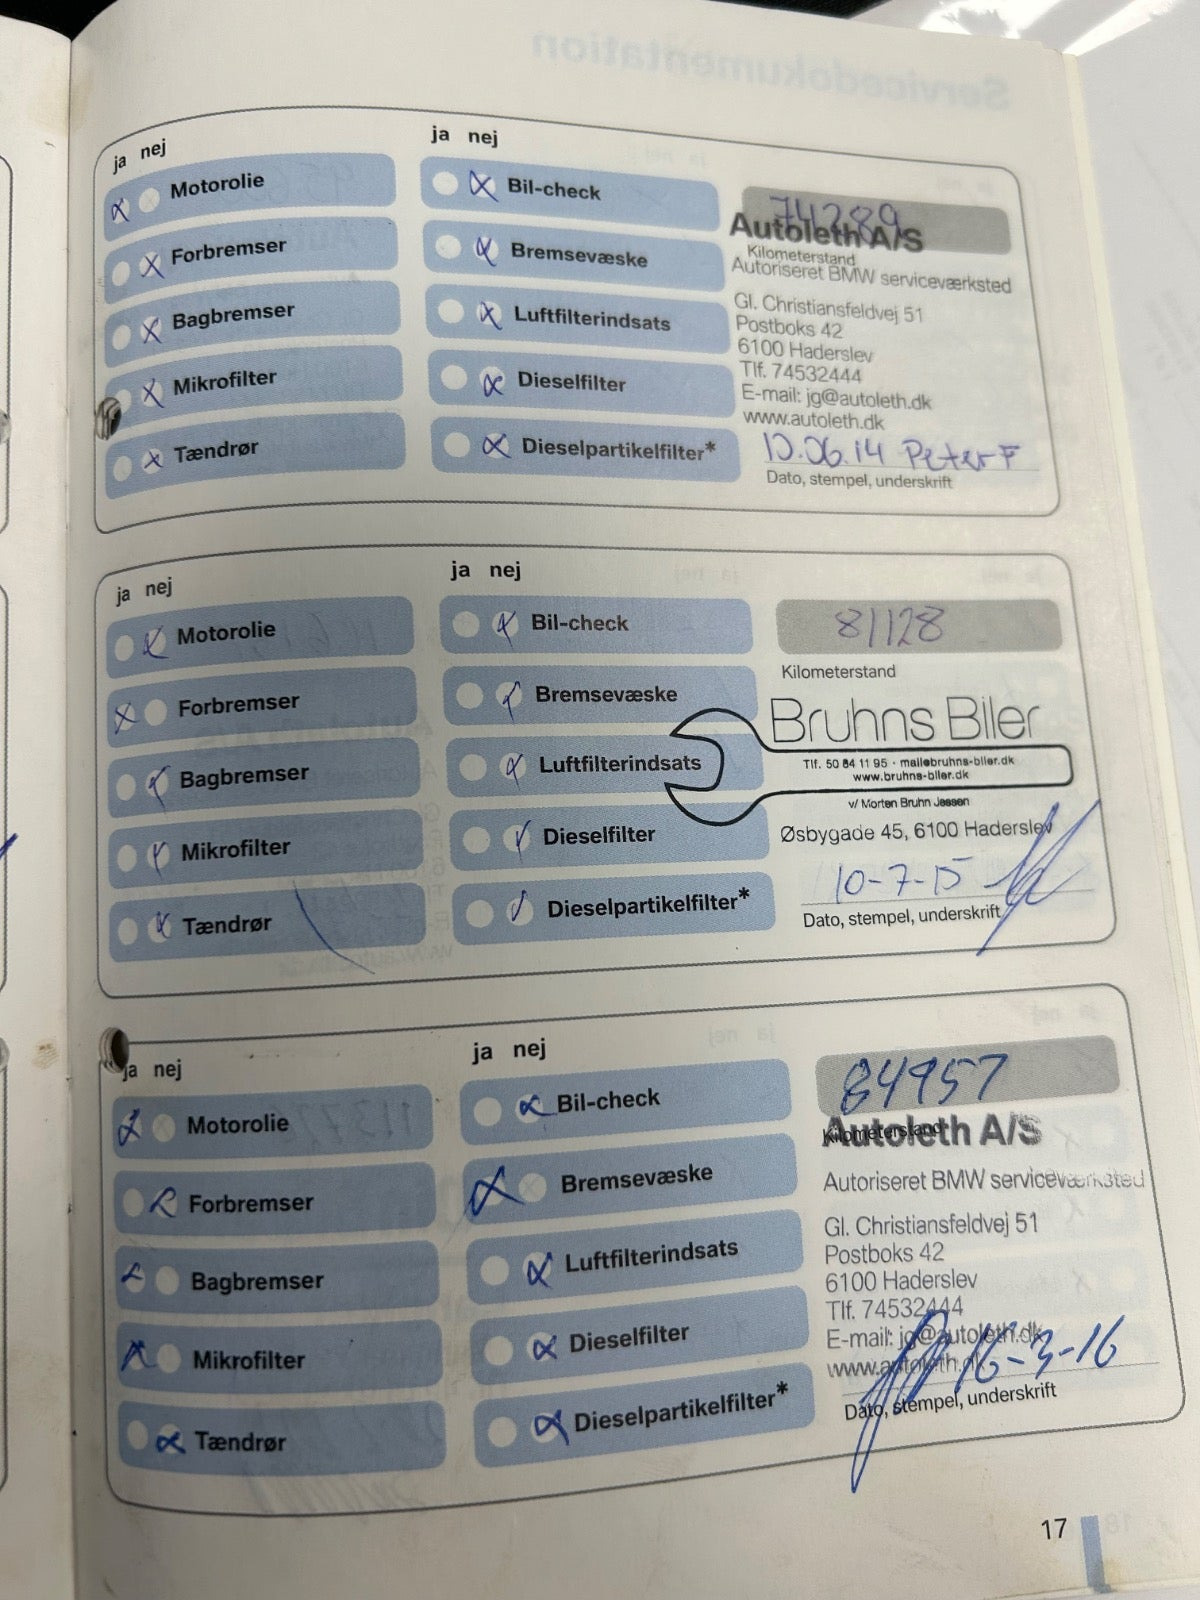 ja nej
ja nej
Motorolie
Forbremser
Bagbremser
Mikrofilter
Tændrør
Bil-check
Bremsevæske
Luftfilterindsats
Dieselfilter
Dieselpartikelfilter*
74289
Autoleth A/S
Kilometerstand
Autoriseret BMW serviceværksted
Gl. Christiansfeldvej 51
Postboks 42
6100 Haderslev
Tlf. 74532444
E-mail: jg@autoleth.dk
www.autoleth.dk
10.06.14 Peter F
Dato, stempel, underskrift
ja nej
ja nej
Motorolie
Forbremser
Bagbremser
Mikrofilter
Tændrør
Bil-check
Bremsevæske
Luftfilterindsats
Dieselfilter
Dieselpartikelfilter*
81128
Kilometerstand
Bruhns Biler
Tlf. 50 84 11 95 · mail@bruhns-biler.dk
www.bruhns-biler.dk
v/ Morten Bruhn Jessen
Øsbygade 45, 6100 Haderslev
10-7-15
Dato, stempel, underskrift
ja nej
ja nej
Motorolie
Forbremser
Bagbremser
Mikrofilter
Tændrør
Bil-check
Bremsevæske
Luftfilterindsats
Dieselfilter
Dieselpartikelfilter*
84957
Kilometerstand
Autoleth A/S
Autoriseret BMW serviceværksted
Gl. Christiansfeldvej 51
Postboks 42
6100 Haderslev
Tlf. 74532444
E-mail: jg@autoleth.dk
www.autoleth.dk
16-3-16
Dato, stempel, underskrift
17